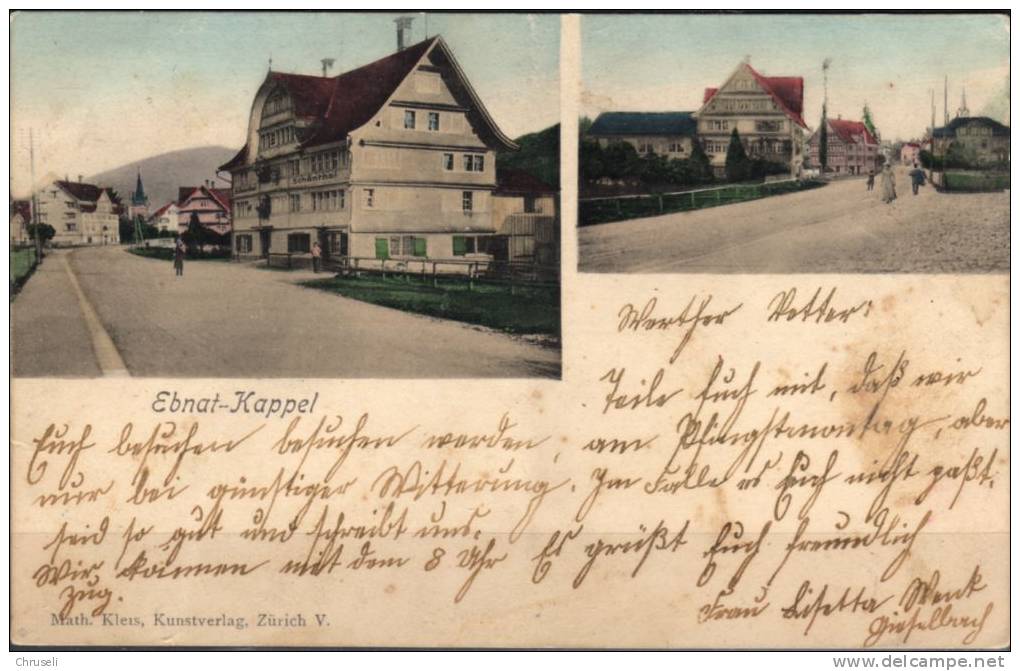 Schönthal
Ebnat-Kappel
Werther Vetter:
Teile Euch mit, daß wir
Euch besuchen besuchen werden, am Pfingstmontag, aber
nur bei günstiger Witterung. Im Falle es Euch nicht paßt,
seid so gut und schreibt uns.
Wir kämen mit dem 8 Uhr Es grüßt Euch freundlich
Zug. Frau Lisetta Wenk
Gieselbach
Math. Kleis, Kunstverlag, Zürich V.
Chruseli
http://www.delcampe.net